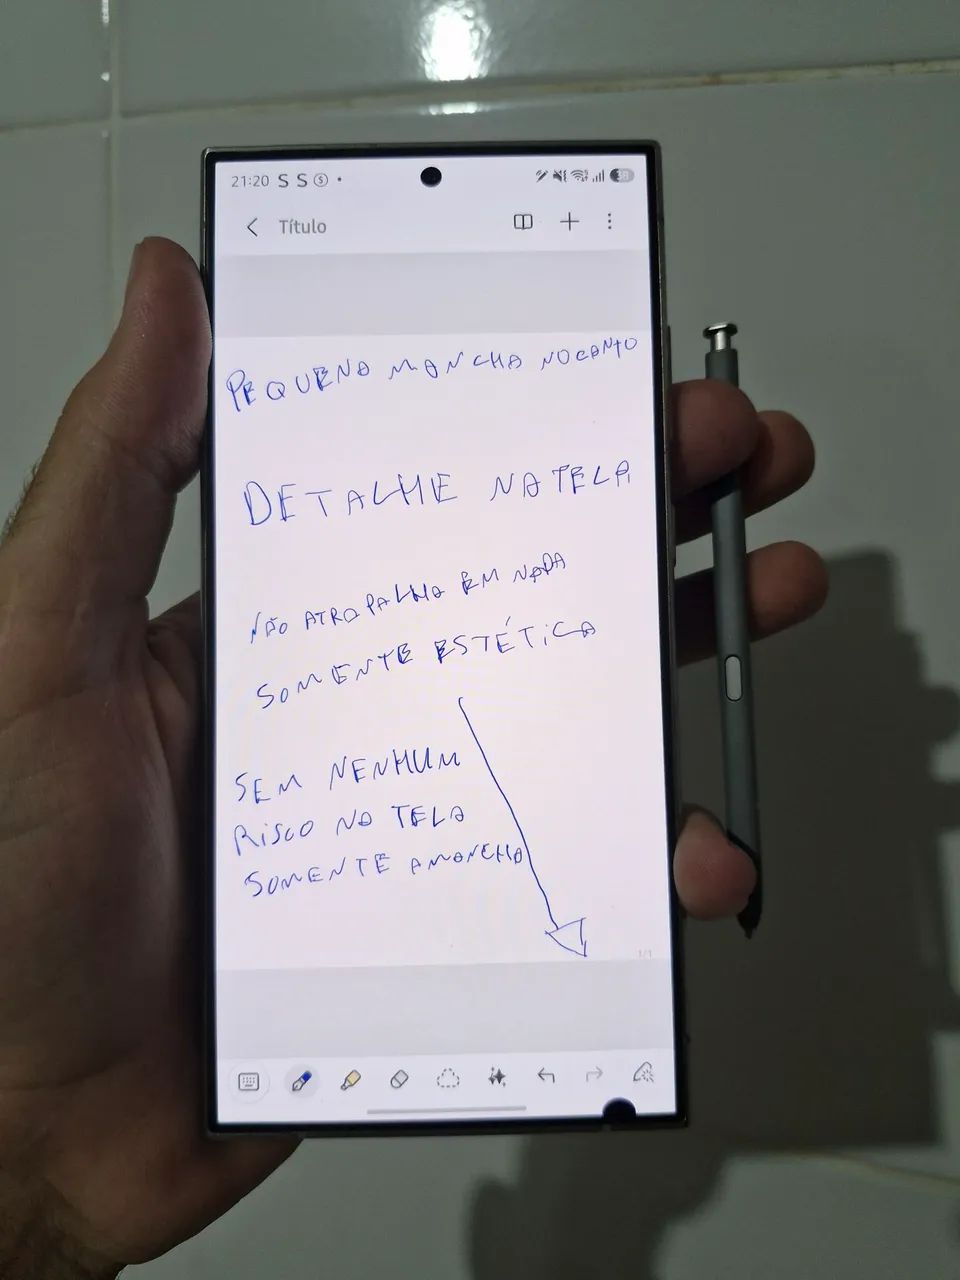 21:20 S S S
Título
PEQUENA MANCHA NO CANTO
DETALHE NA TELA
NÃO ATROPALHA EM NADA
SOMENTE ESTÉTICA
SEM NENHUM
RISCO NA TELA
SOMENTE A MANCHA
1/1